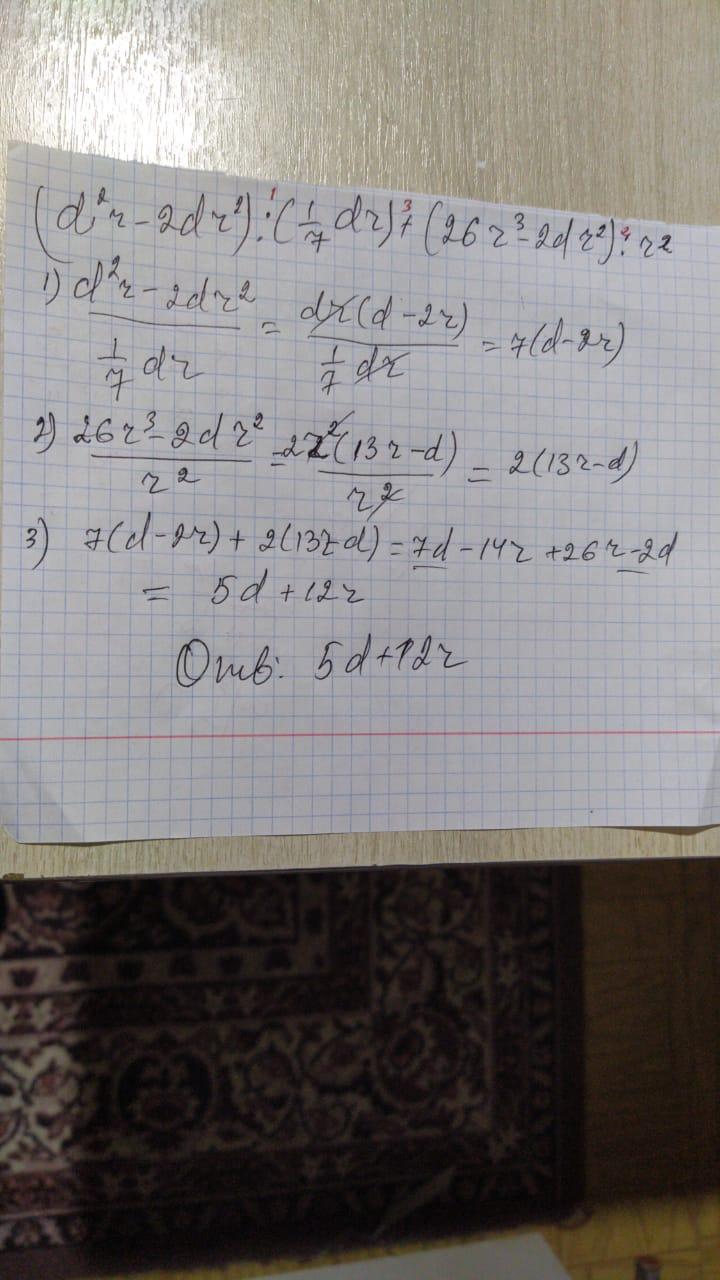 (d²r - 2dr²) : (1/7 dr) + (26r³ - 2dr²) : r²
1 3 2
1) (d²r - 2dr²)/(1/7 dr) = dr(d - 2r)/(1/7 dr) = 7(d - 2r)
2) (26r³ - 2dr²)/r² = 2r²(13r - d)/r² = 2(13r - d)
3) 7(d - 2r) + 2(13r - d) = 7d - 14r + 26r - 2d
= 5d + 12r
Отв: 5d + 12r